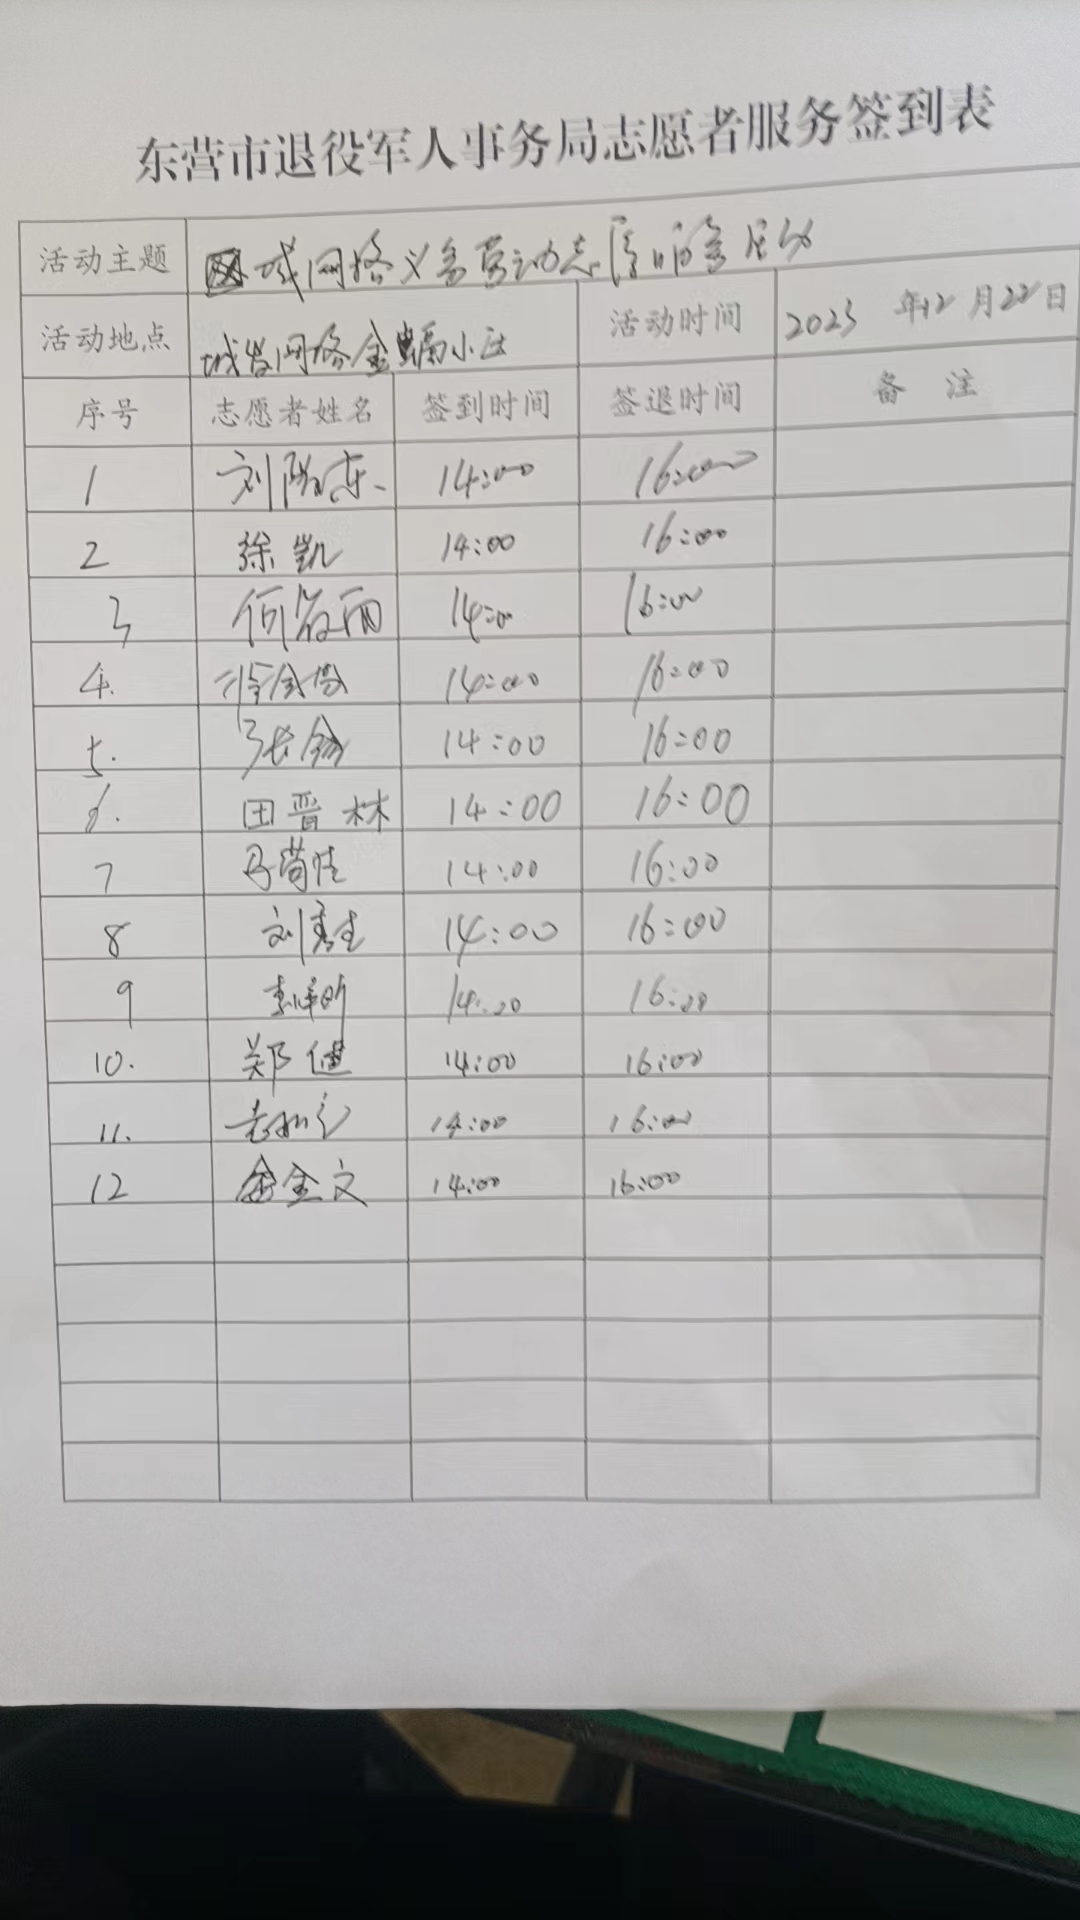 东营市退役军人事务局志愿者服务签到表
活动主题 城网格义务劳动志
活动地点 城发网格金 小区 活动时间 2023 年12月22日
序号 志愿者姓名 签到时间 签退时间 备 注
1 刘 东 14:00 16:00
2 徐凯 14:00 16:00
3 何 丽 14:00 16:00
4. 徐 14:00 16:00
5. 张 14:00 16:00
6. 田晋林 14:00 16:00
7 马 佳 14:00 16:00
8 刘 14:00 16:00
9 李 昕 14:20 16:20
10. 郑健 14:00 16:00
11. 14:00 16:00
12 金文 14:00 16:00